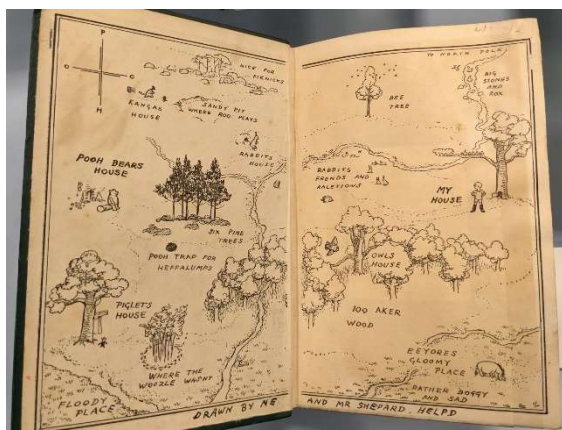 P
O
O
H
NICE FOR
PICNICKS
KANGAS
HOUSE
SANDY PIT
WHERE ROO PLAYS
RABBITS
HOUSE
POOH BEARS
HOUSE
SIX PINE
TREES
POOH TRAP FOR
HEFFALUMPS
PIGLETS
HOUSE
WHERE THE
WOOZLE WASNT
FLOODY
PLACE
DRAWN BY ME
TO NORTH POLE
BIG
STONES
AND
ROX
BEE
TREE
RABBITS
FRENDS AND
RALETIONS
MY
HOUSE
OWLS
HOUSE
100 AKER
WOOD
EEYORES
GLOOMY
PLACE
RATHER BOGGY
AND SAD
AND MR SHEPARD HELPD